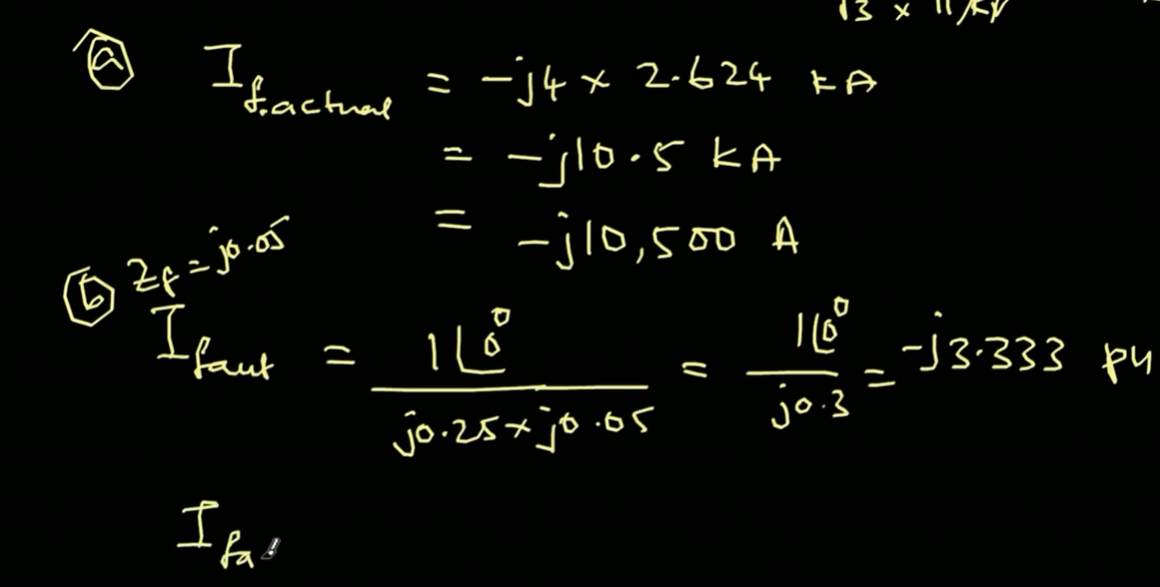 √3 × 11 kV
ⓐ I f.actual = -j4 × 2.624 kA
= -j10.5 kA
= -j10,500 A
ⓑ Zf = j0.05
I faut = 1∠0° / j0.25 + j0.05 = 1∠0° / j0.3 = -j3.333 pu
I fa